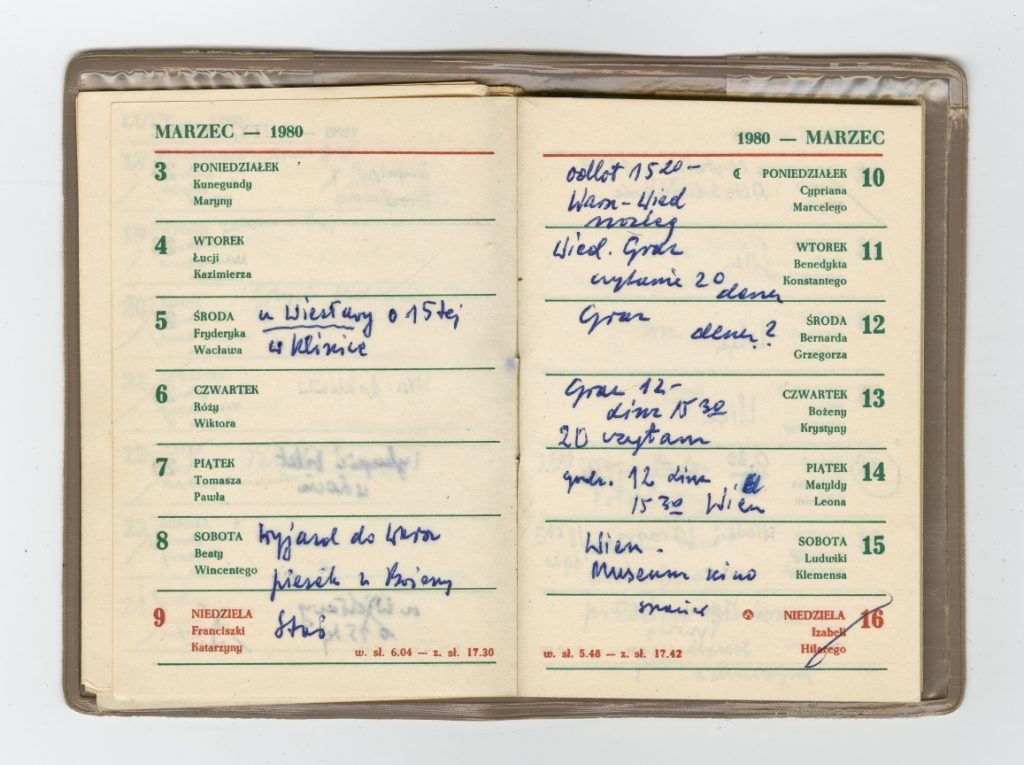 MARZEC — 1980
3 PONIEDZIAŁEK
Kunegundy
Maryny
4 WTOREK
Łucji
Kazimierza
5 ŚRODA u Wiesławy o 15tej
Fryderyka
Wacława w Klinice
6 CZWARTEK
Róży
Wiktora
7 PIĄTEK
Tomasza
Pawła
8 SOBOTA wyjazd do Warsz
Beaty
Wincentego piesek u Bożeny
9 NIEDZIELA
Franciszki Staś
Katarzyny
w. sł. 6.04 — z. sł. 17.30
1980 — MARZEC
odlot 15 20 –
PONIEDZIAŁEK 10
Warsz – Wied Cypriana
nocleg Marcelego
Wied. Graz WTOREK 11
Benedykta
czytanie 20 Konstantego
Graz ŚRODA 12
? Bernarda
Grzegorza
Graz 12 – CZWARTEK 13
15 30 Bożeny
20 czytam Krystyny
godz. 12 PIĄTEK 14
Matyldy
15 30 Wien Leona
Wien. SOBOTA 15
Ludwiki
Museum kino Klemensa
spacer NIEDZIELA 16
Izabeli
Hilarego
w. sł. 5.48 — z. sł. 17.42